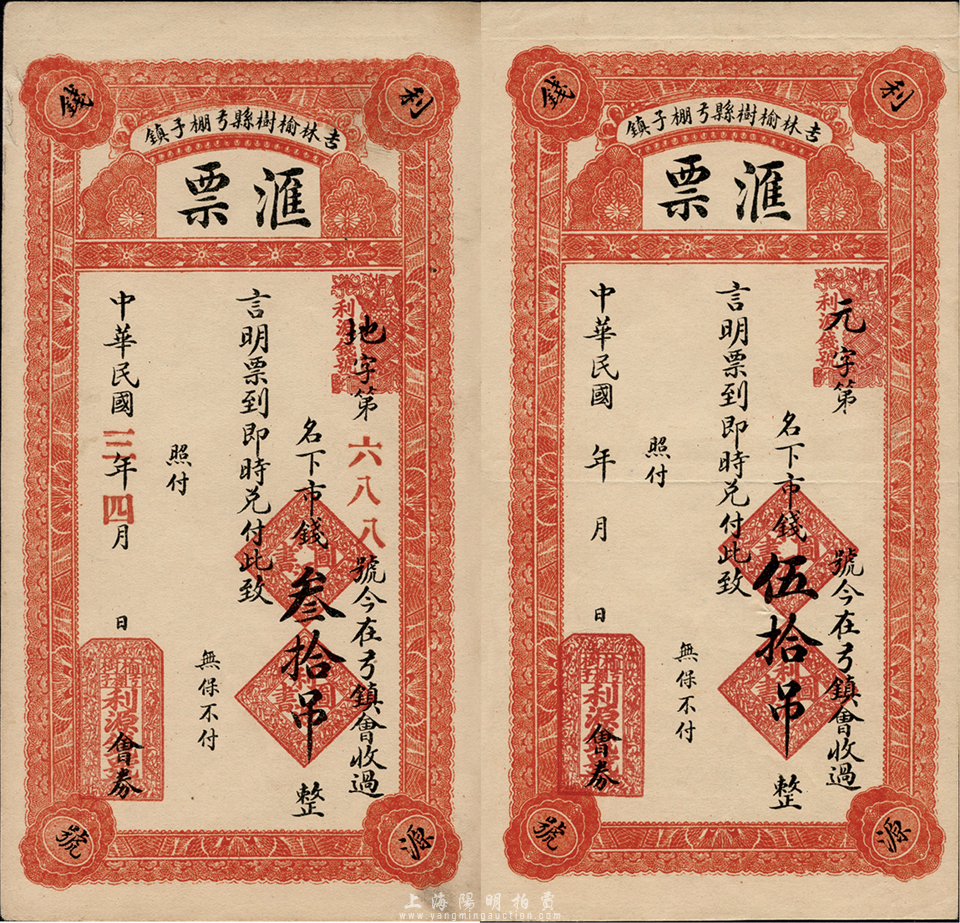 利
源
錢
號
吉林榆樹縣弓棚子鎮
滙票
利源錢號
地字第六八八號今在弓鎮會收過
名下市錢叁拾吊整
言明票到即時兑付此致
無保不付
照付
中華民國三年四月 日
利源 會券
利
源
錢
號
吉林榆樹縣弓棚子鎮
滙票
利源錢號
元字第 號今在弓鎮會收過
名下市錢伍拾吊整
言明票到即時兑付此致
無保不付
照付
中華民國 年 月 日
利源 會券
上海陽明拍賣
www.yangmingauction.com